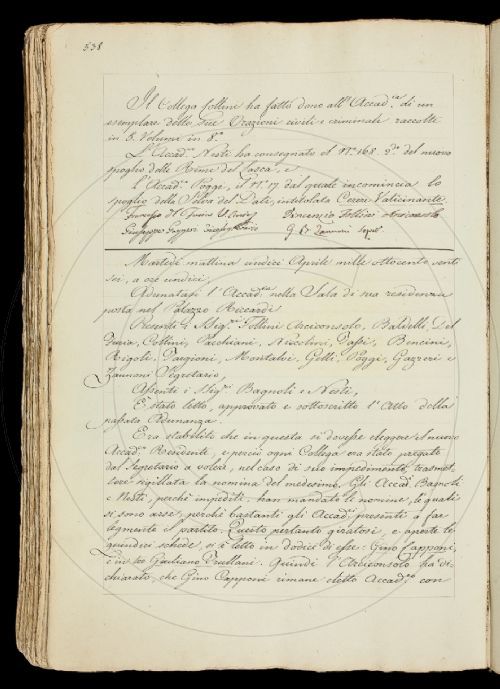 538
Il Collega Collini ha fatto dono all'Accad.ia di un
esemplare delle sue Orazioni civili e criminali raccolte
in 8. Volumi in 8.o
L'Accad.o Nesti ha consegnato il N.o 168. 2.do del nuovo
spoglio delle Rime del Lasca, e
l'Accad.o Poggi, il N.o 17 dal quale incomincia lo
spoglio della Selva del Dati, intitolata Cerere Vaticinante.
Francesco Vincenzio Follini Arciconsolo
Giuseppe G. B. Zannoni Seg.
Martedì mattina undici Aprile mille ottocento venti
sei, a ore undici,
Adunatasi l'Accad.ia nella Sala di sua residenza
posta nel Palazzo Riccardi
Presenti i Sig.ri Follini Arciconsolo, Baldelli, Del
Furia, Collini, Pacchiani, Niccolini, Papi, Bencini,
Rigoli, Targioni, Montalvi, Gelli, Poggi, Gazzeri e
Zannoni Segretario,
Assenti i Sig.ri Bagnoli e Nesti,
È stato letto, approvato e sottoscritto l'Atto della
passata Adunanza.
Era stabilito che in questa si dovesse eleggere il nuovo
Accad.o Residente, e perciò ogni Collega era stato pregato
dal Segretario a voler, nel caso di suo impedimento, trasmet,
tere sigillata la nomina del medesimo. Gli Accad.i Bagnoli
e Nesti, perchè impediti, han mandato le nomine, le quali
si sono arse, perchè bastanti gli Accad.i presenti a far
legalmente il partito. Questo pertanto giratosi, e aperte le
quindici schede, si è letto in dodici di esse: Gino Capponi,
e in tre Giuliano Frullani. Quindi l'Arciconsolo ha di,
chiarato, che Gino Capponi rimane eletto Accad.co con